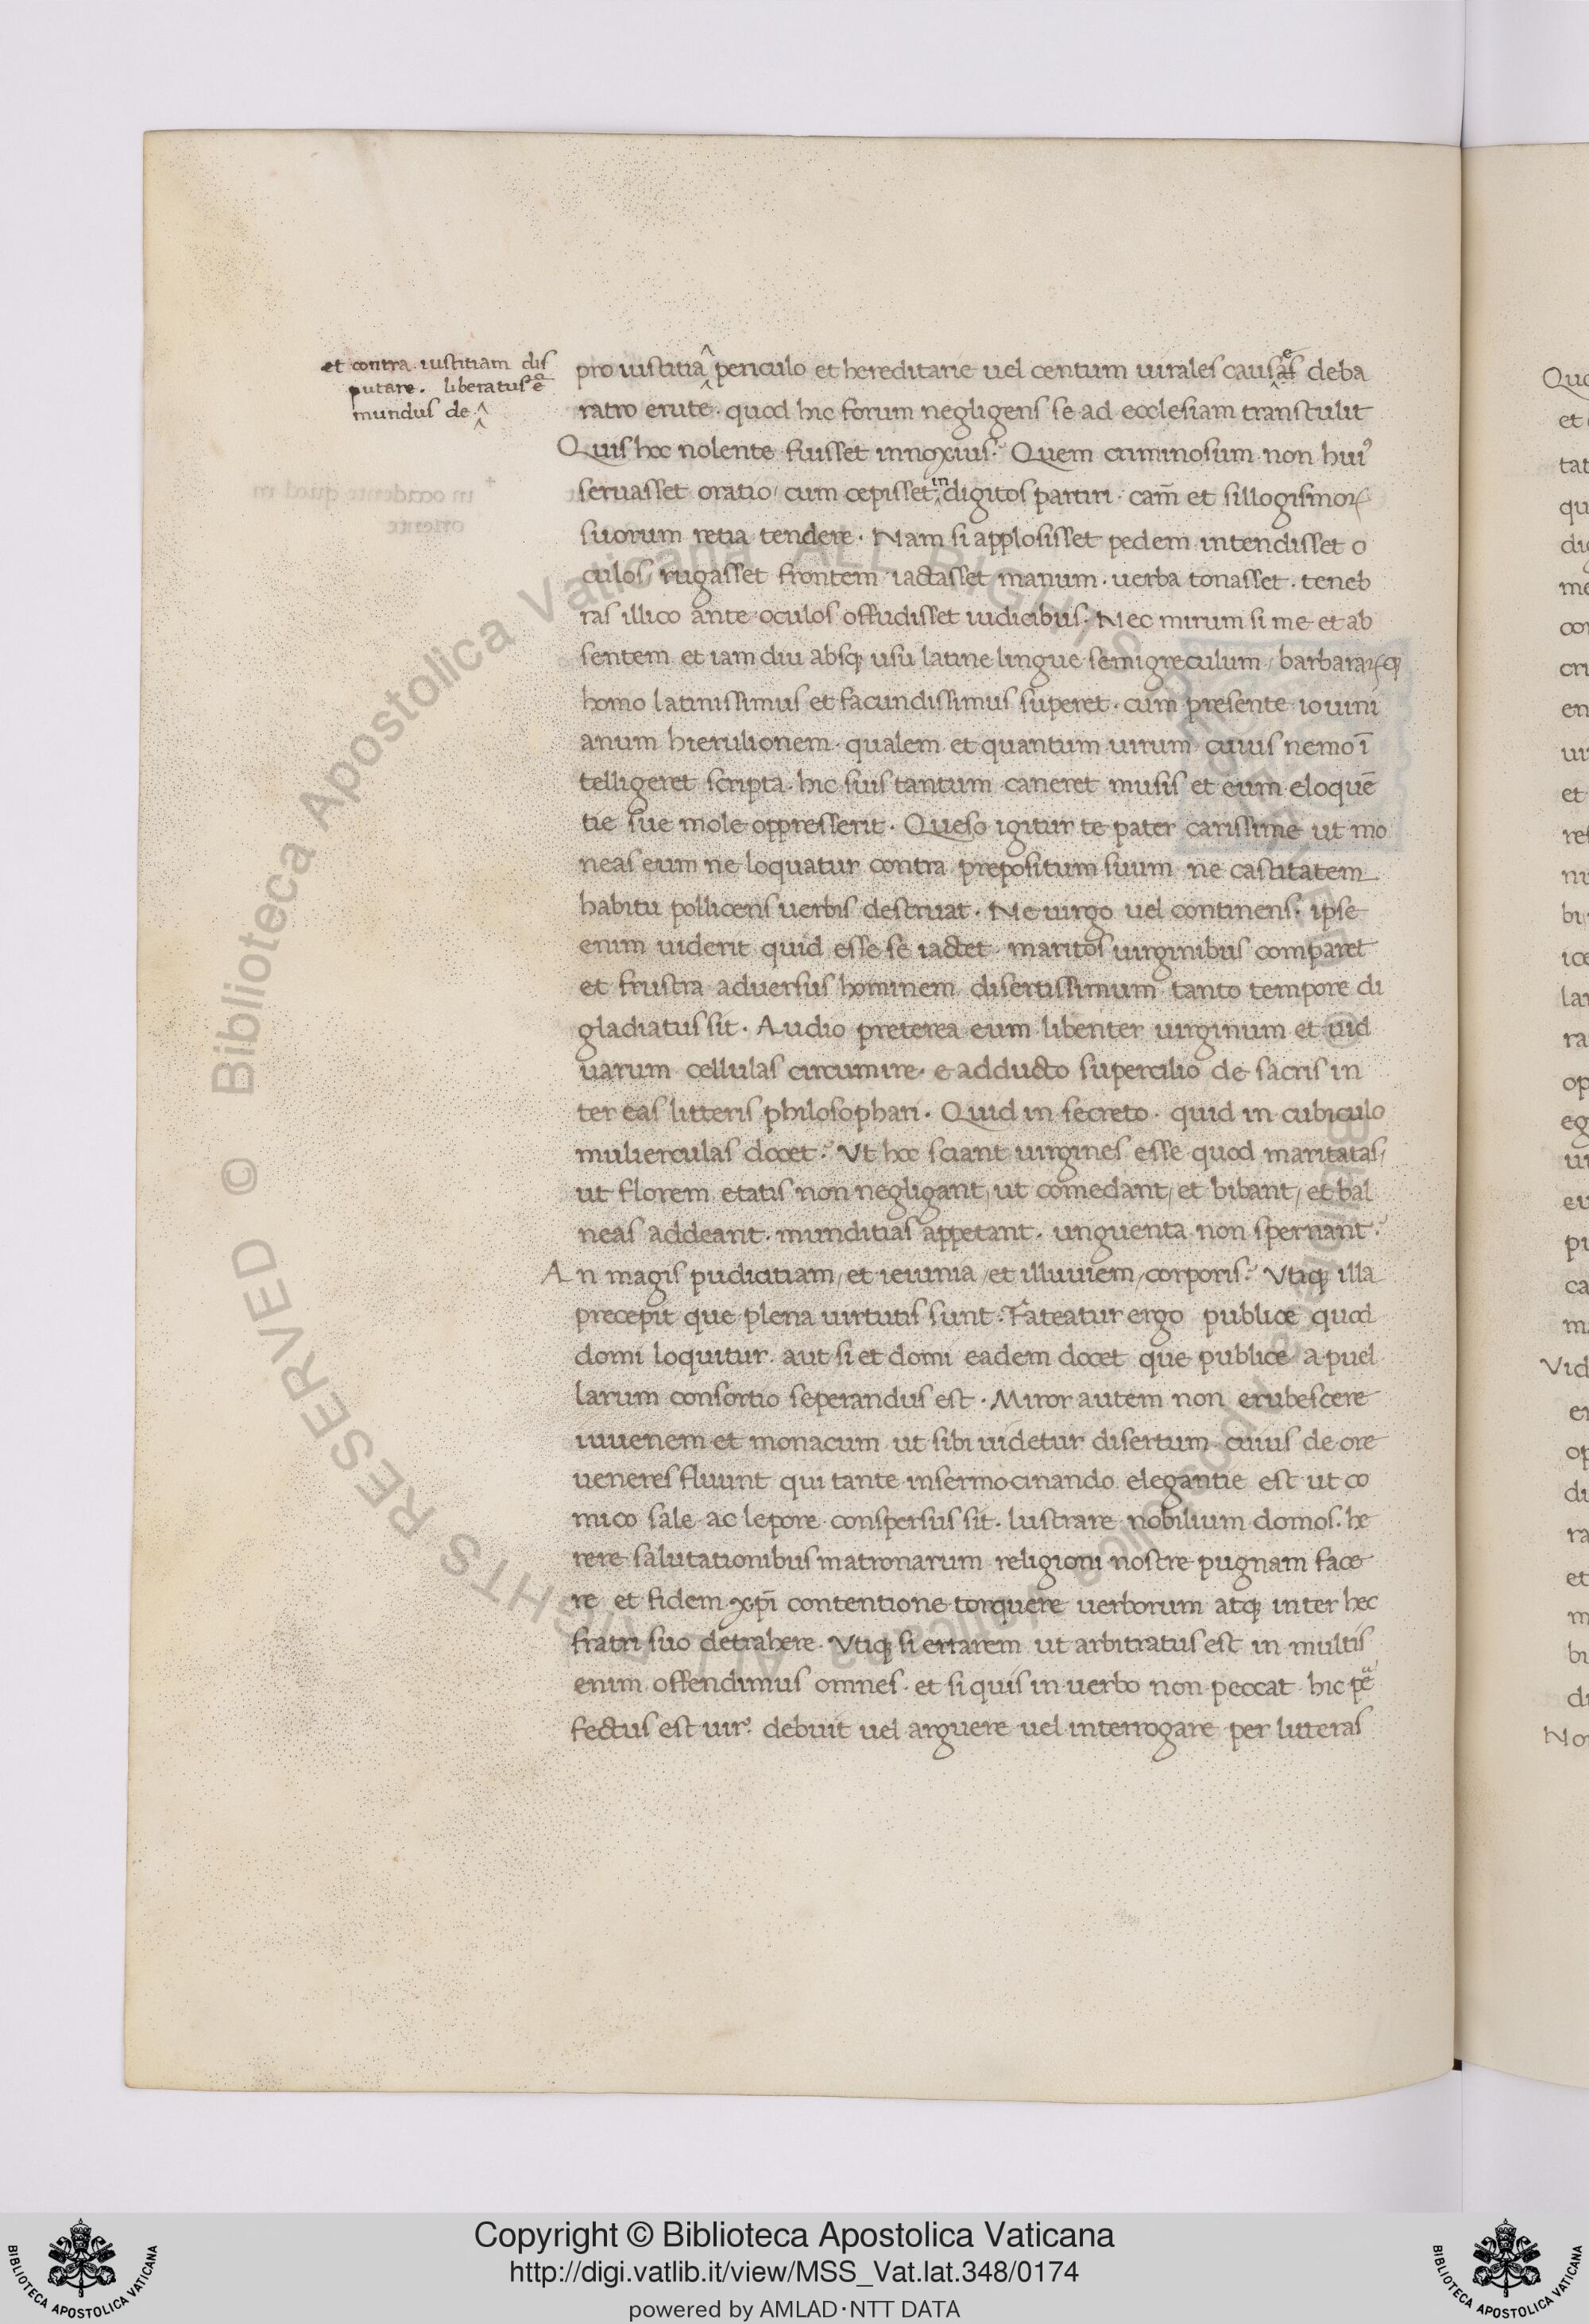 et contra iustitiam dis
putare. liberatus ē
mundus de
pro iustitia periculo et hereditarie uel centum uirales causas deba
ratro erute. quod hic forum negligens se ad ecclesiam transtulit
Quis hoc nolente fuisset innoxius? Quem criminosum non hui9
seruasset oratio/ cum cepisset in digitos partiri. cam̄ et sillogismoꝝ
suorum retia tendere. Nam si applosisset pedem intendisset o
culos/ rugasset frontem iactasset manum. uerba tonasset. teneb
ras illico ante oculos offudisset iudicibus. Nec mirum si me et ab
sentem et iam diu absqꝫ usu latine lingue semigreculum/ barbaraꝝqꝫ
homo latinissimus et facundissimus superet. cum presente iouini
anum hierulionem. qualem et quantum uirum cuius nemo ī
telligeret scripta. hic suis tantum caneret musis et eum eloquē
tie sue mole oppresserit. Queso igitur te pater carissime ut mo
neas eum ne loquatur contra prepositum suum ne castitatem
habitu pollicens uerbis destruat. Ne uirgo uel continens. ipse
enim uiderit quid esse se iactet. maritos uirginibus comparet
et frustra aduersus hominem disertissimum tanto tempore di
gladiatus sit. Audio preterea eum libenter uirginum et uid
uarum cellulas circumire. e adducto supercilio de sacris in
ter eas litteris philosophari. Quid in secreto. quid in cubiculo
mulierculas docet? Vt hoc sciant uirgines esse quod maritatas/
ut florem etatis non negligant/ ut comedant/ et bibant/ et bal
neas addeant. munditias appetant. unguenta non spernant?
An magis pudicitiam/ et ieiunia/ et illuuiem/ corporis? Vtiqꝫ illa
precepit que plena uirtutis sunt. Fateatur ergo publice quod
domi loquitur. aut si et domi eadem docet que publice a puel
larum consortio seperandus est. Miror autem non erubescere
iuuenem et monacum ut sibi uidetur disertum cuius de ore
ueneres fluunt qui tante insermocinando elegantie est ut co
mico sale ac lepore conspersus sit. lustrare nobilium domos. he
rere salutationibus matronarum religioni nostre pugnam face
re et fidem xp̄i contentione torquere uerborum atqꝫ inter hec
fratri suo detrahere. Vtiqꝫ si errarem ut arbitratus est in multis
enim offendimus omnes. et si quis in uerbo non peccat hic pe
fectus est uir? debuit uel arguere uel interrogare per litteras
Copyright © Biblioteca Apostolica Vaticana
http://digi.vatlib.it/view/MSS_Vat.lat.348/0174
powered by AMLAD·NTT DATA